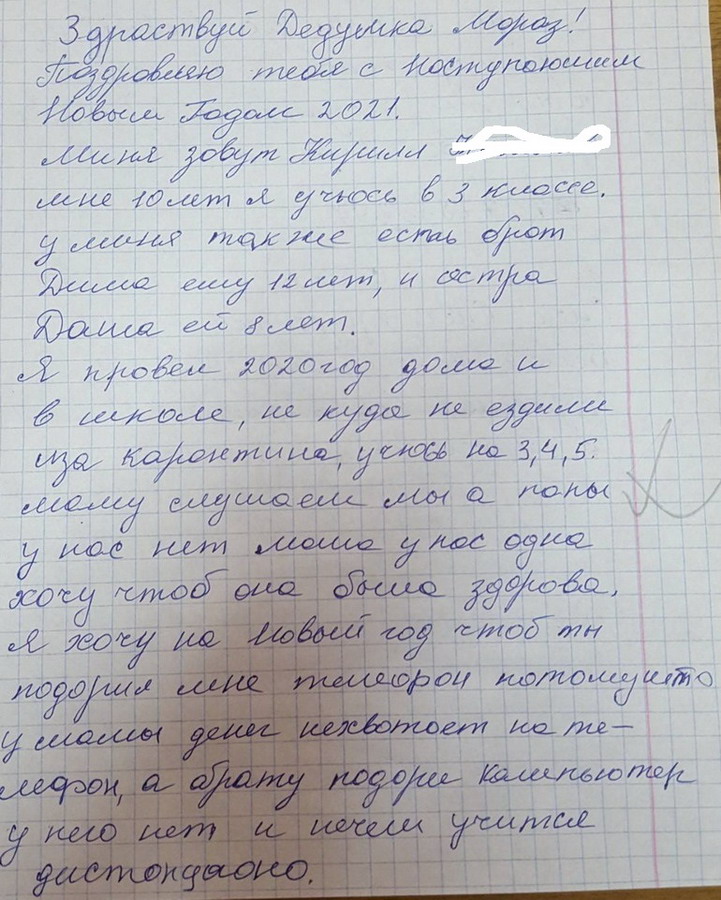 Здраствуй Дедушка Мороз!
Поздровляю тебя с Ноступоюшим
Новым Годом 2021.
Миня зовут Кирилл
мне 10 лет я учюсь в 3 классе.
у миня также есть брат
Дима ему 12 лет, и состра
Даша ей 8 лет.
Я провел 2020 год дома и
в школе, не куда не ездили
иза каронтина, учюсь на 3,4,5.
маму слушаем мы а папы
у нас нет мама у нас одна
хочу чтоб она была здорова.
Я хочу на Новый год чтоб ты
подорил мне телефон потомушто
у мамы денег нехвотоет на те-
лефон, а абрату подори компьютер
у него нет и нечем учится
дистонцаоно.